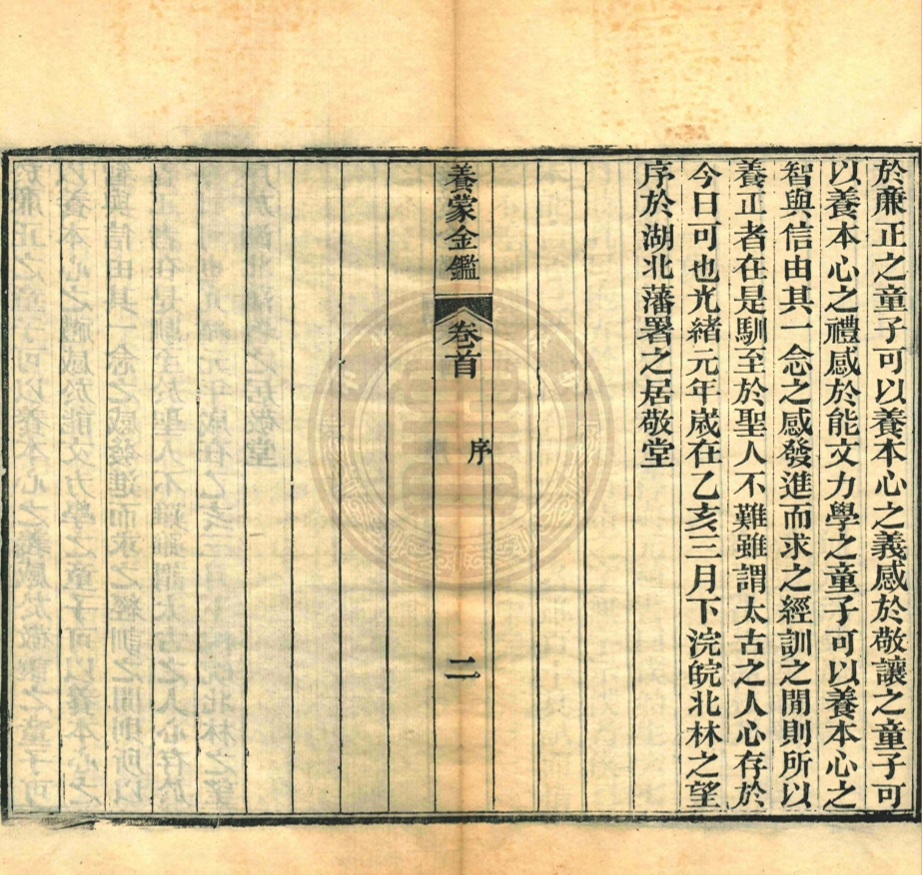 於廉正之童子可以養本心之義感於敬讓之童子可
以養本心之禮感於能文力學之童子可以養本心之
智與信由其一念之感發進而求之經訓之閒則所以
養正者在是馴至於聖人不難雖謂太古之人心存於
今日可也光緒元年歲在乙亥三月下浣皖北林之望
序於湖北藩署之居敬堂
養蒙金鑑
卷首
序
二